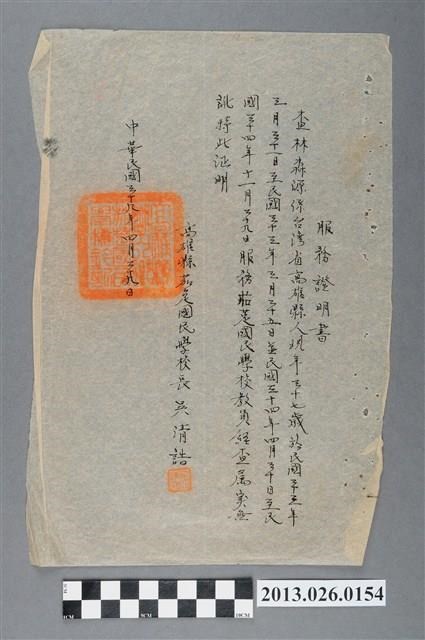 服務證明書
查林淼源係台灣省高雄縣人現年三十七歲於民國二十三年
三月三十一日至民國三十三年三月三十五日並民國三十四年四月三十日至民
國三十四年十一月二十九日服務茄萣國民學校教員経查属実無
訛特此証明
高雄縣茄萣國民學校長 吳清誥
中華民國三十九年四月二十九日
2013.026.0154